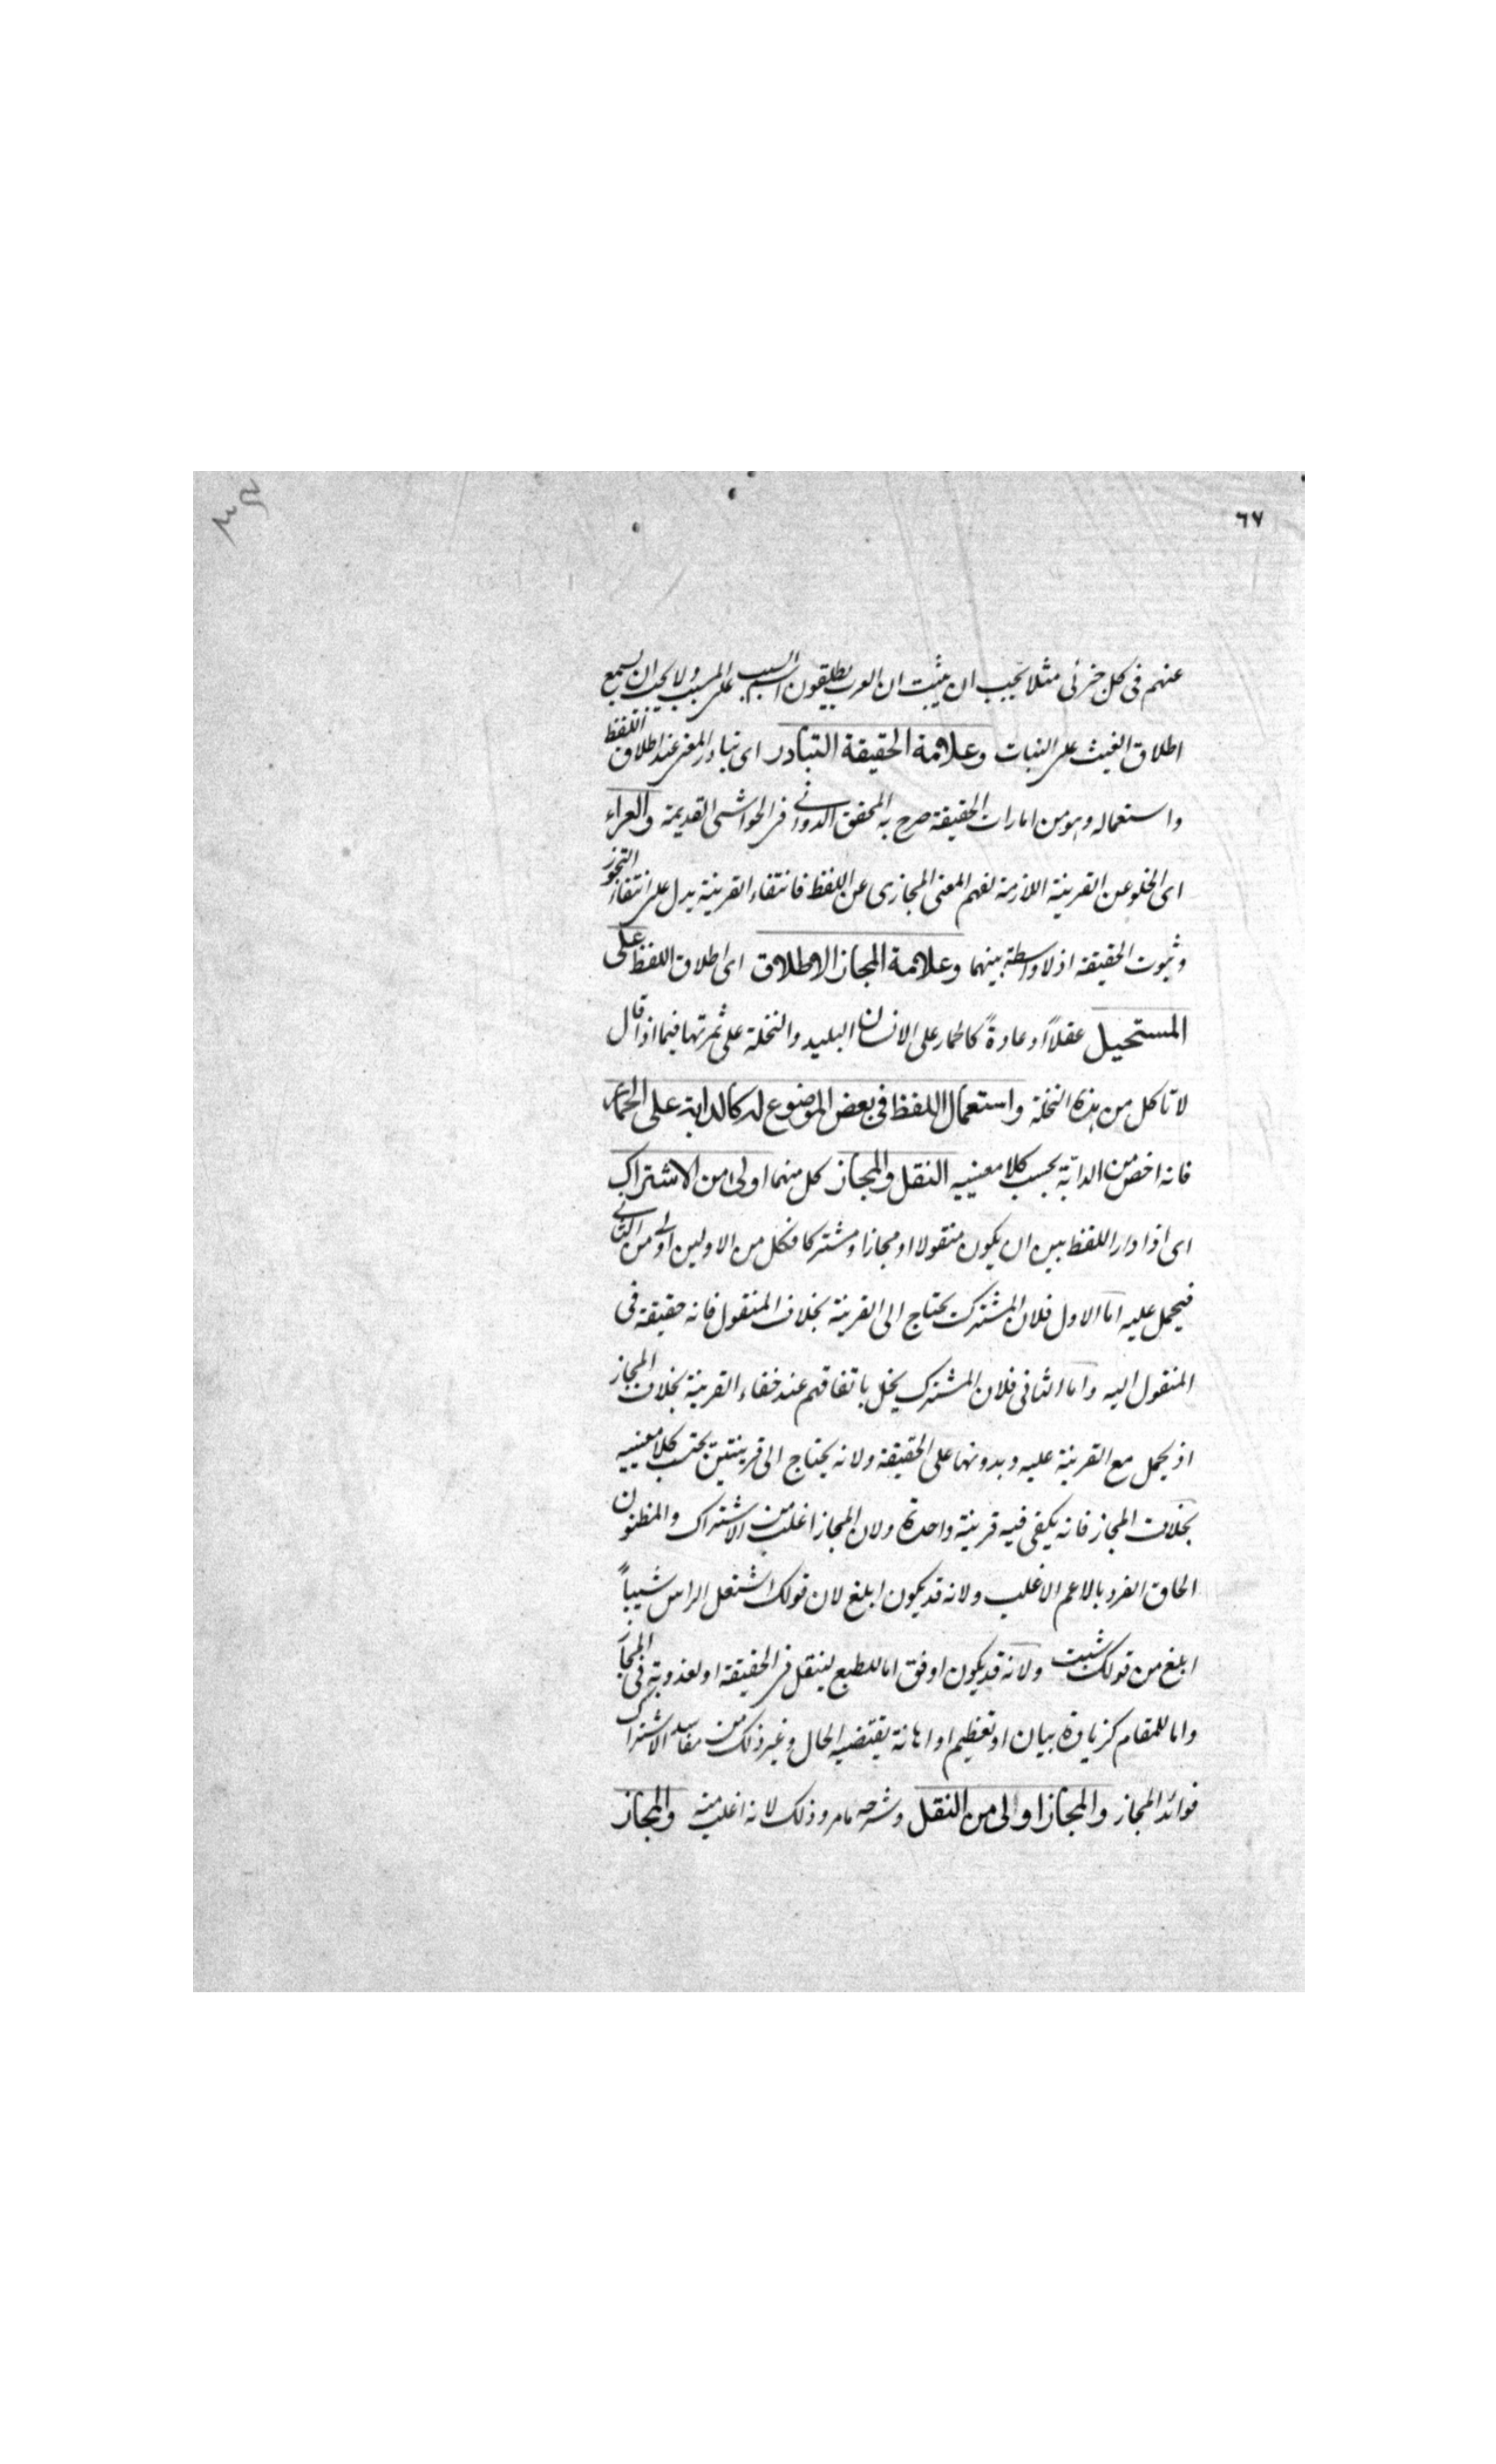 ٦٧
عنهم فى كل جزئى مثلا يجب ان يثبت ان العرب يطلقون اسم السبب على المسبب ولا يجب ان يسمع
اطلاق الغيث على النبات وعلامة الحقيقة التبادر اى تبادر المعنى عند اطلاق اللفظ
واستعماله وهو من امارات الحقيقة صرح به المحقق الدوانى فى الحواشى القديمة والعراء
اى الخلو عن القرينة اللازمة لفهم المعنى المجازى عن اللفظ فانتفاء القرينة يدل على انتفاء التجوز
وثبوت الحقيقة اذ لا واسطة بينهما وعلامة المجاز الاطلاق اى اطلاق اللفظ على
المستحيل عقلاً او عادةً كالحمار على الانسان البليد والنخلة على ثمرتها فيما اذا قال
لا تاكل من هذه النخلة واستعمال اللفظ فى بعض الموضوع له كالدابة على الحمار
فانه اخص من الدابّة بحسب كلا معنييه النقل والمجاز كل منهما اولى من الاشتراك
اى اذا دار اللفظ بين ان يكون منقولا او مجازا ومشتركا فكل من الاولين اولى من الثانى
فيحمل عليه اما الاول فلان المشترك يحتاج الى القرينة بخلاف المنقول فانه حقيقة فى
المنقول اليه واما الثانى فلان المشترك يخل باتفاقهم عند خفاء القرينة بخلاف المجاز
اذ يحمل مع القرينة عليه وبدونها على الحقيقة ولانه يحتاج الى قرينتين بحسب كلا معنييه
بخلاف المجاز فانه يكفى فيه قرينة واحدة ولان المجاز اغلب من الاشتراك والمظنون
الحاق الفرد بالاعم الاغلب ولانه قد يكون ابلغ لان قولك اشتعل الراس شيباً
ابلغ من قولك شبت ولانه قد يكون اوفق اما للطبع لينقل فى الحقيقة او لعذوبة فى المجاز
واما للمقام كزيادة بيان او تعظيم او اهانة يقتضيه الحال وغير ذلك من مفاسد الاشتراك
فوائد المجاز والمجاز اولى من النقل وشرحه ما مر وذلك لانه اغلب منه والمجاز